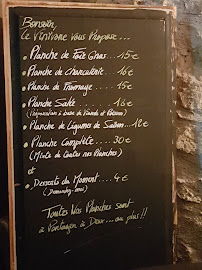 Bonsoir,
Le Vintrone vous Propose...
Planche de Foie Gras... 15€
Planche de Charcuterie... 16€
Planche de Fromage... 15€
Planche Salé... 16€
Planche de Légumes de Saison... 12€
Planche Complète... 30€
(Mixte de toutes nos Planches)
et
Desserts du Moment... 4€
(Demandez-nous)
Toutes Nos Planches sont
à Partager à Deux... ou plus!!